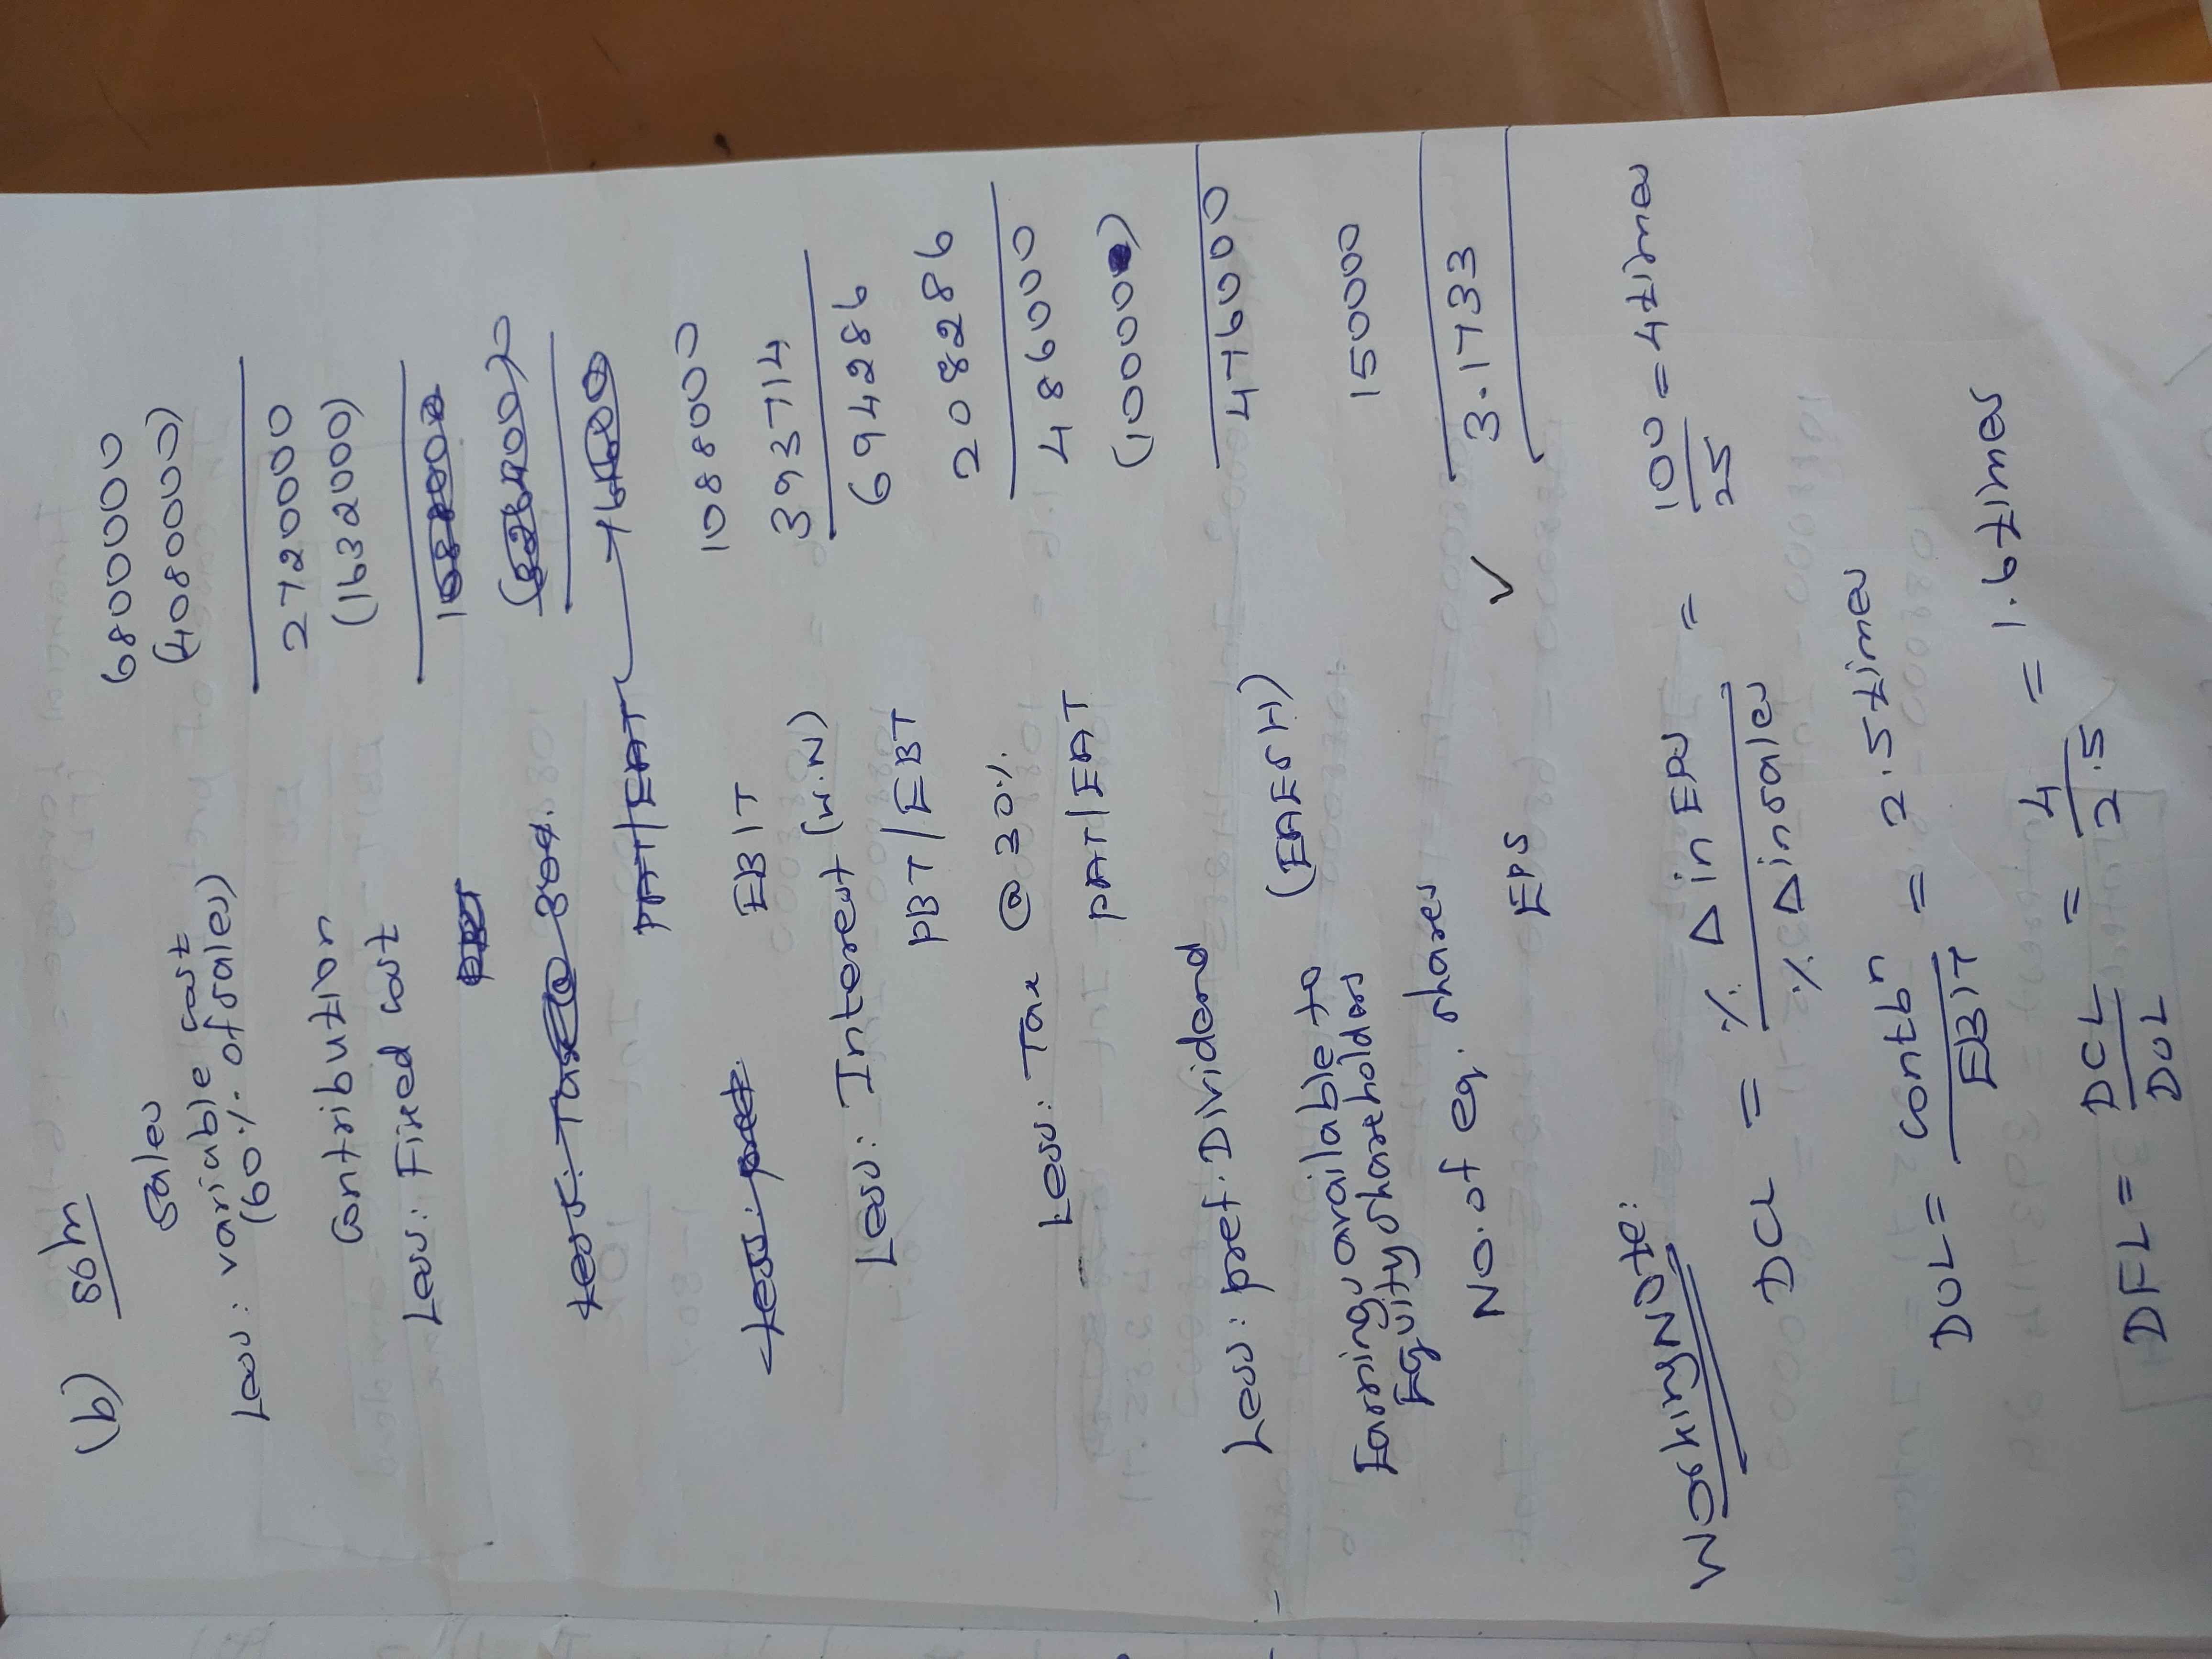 (b) Soln
Sales 6800000
Less: variable cost (4080000)
(60% of sales)
Contribution 2720000
Less: Fixed cost (1632000)
Less: Tax @ 30%
PAT/EAT
EBIT 1088000
Less: pref.
Less: Interest (W.N) 393714
PBT/EBT 694286
Less: Tax @ 30% 208286
PAT/EAT 486000
Less: pref. Dividend (10000)
Earnings available to (EAESH) 476000
Equity shareholders
No. of eq. shares 150000
EPS ✓ 3.1733
Working Note:
DCL = % Δ in EPS / % Δ in sales = 100/25 = 4 times
DOL = contbn / EBIT = 2.5 times
DFL = DCL / DOL = 4 / 2.5 = 1.6 times